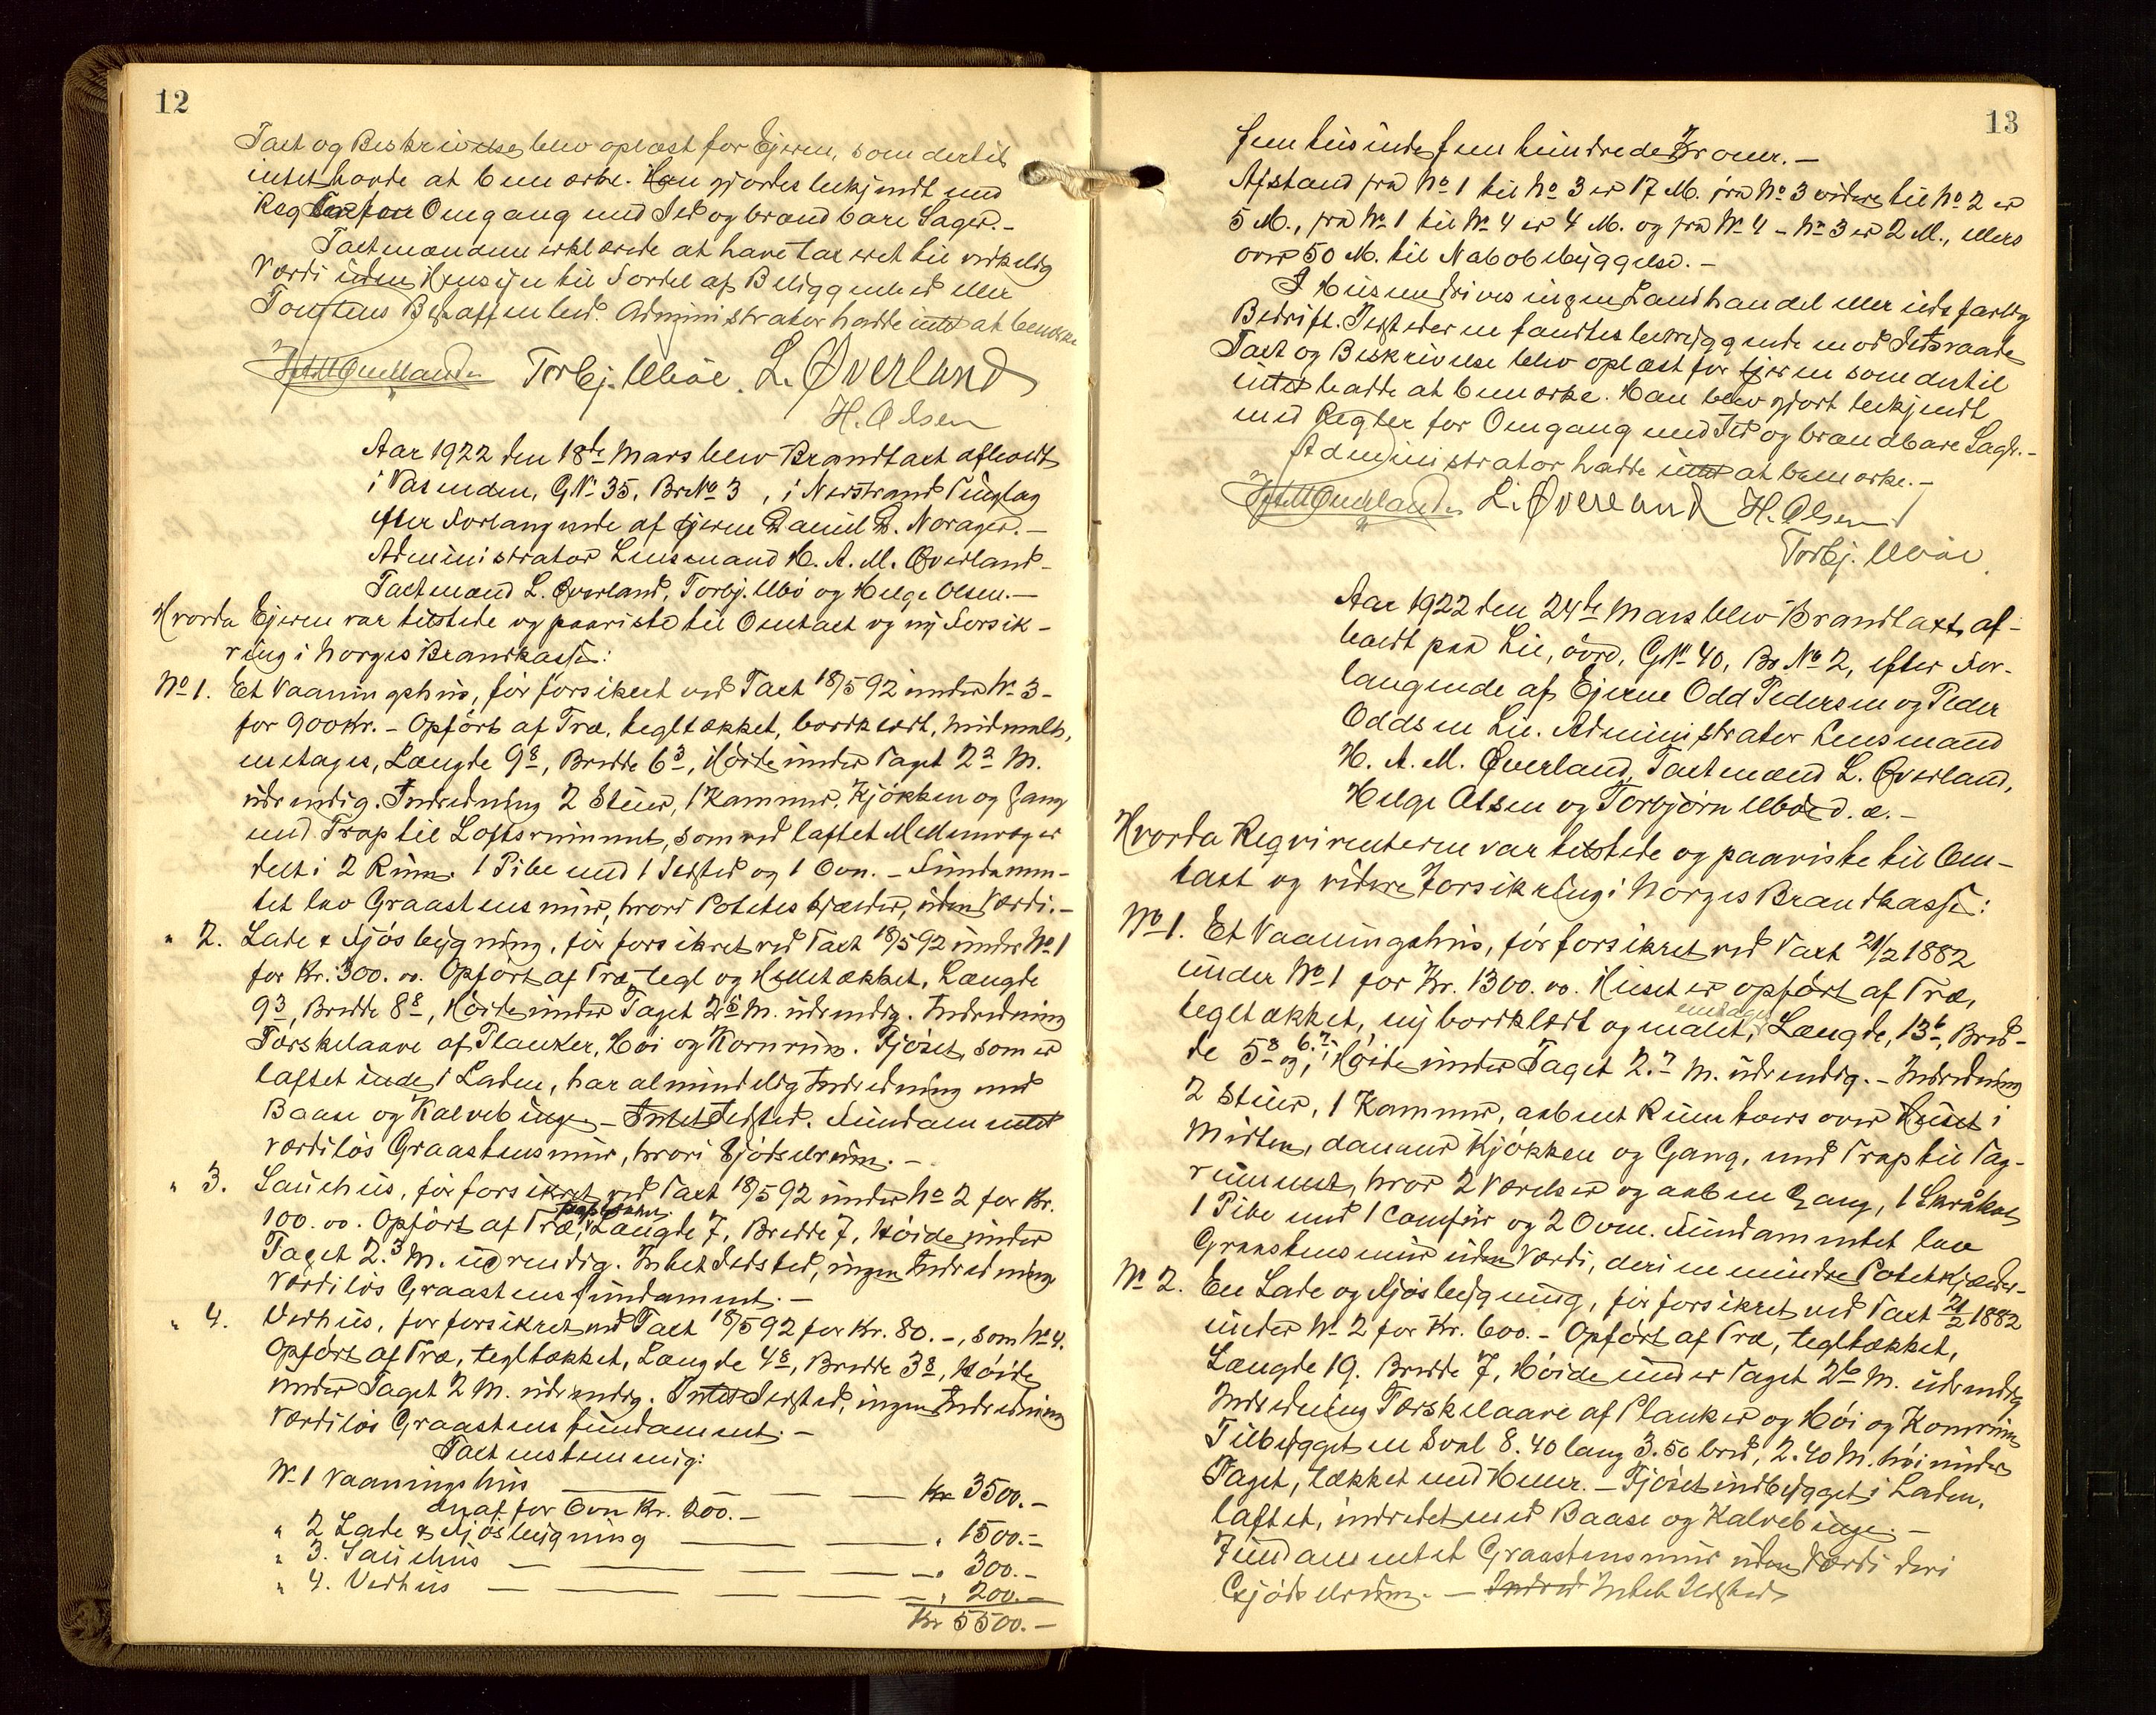 12
Taxt og Beskrivelse blev oplæst for Ejeren, som dertil
intet havde at bemærke. Han gjordes bekjendt med
Regler for Omgang med Ild og brændbare Sager.-
Taxtmændene erklærede at have taxeret til virkelig
Værdi uden Hensyn til Fordel af Beliggenhed eller
Tomtens Beskaffenhed. Administrator hadde intet at bemærke
Torbj. Mbøe. L. Øverland
H. Olsen
Aar 1922 den 18de Mars blev Brandtaxt afholdt
i Vasenden, G.№ 35, Br№ 3, i Nerstrand Tinglag
efter Forlangende af Ejeren Daniel D. Norager.-
Administrator Lensmand H. A. M. Øverland-
Taxtmænd L. Øverland, Torbj. Mbø og Helge Olsen.-
Hvorda Ejeren var tilstede og paaviste til Omtaxt og ny Forsik-
ring i Norges Brandkasse:
№ 1. Et Vaaningshus, før forsikret ved Taxt 18/5 92 under № 3-
for 900 Kr.- Opført af Træ, tegltækket, bordklædt, hvidmalt,
enetages, Længde 9 8, Bredde 6 3, Høide under Taget 2 2 M.
udvendig. Indredning 2 Stuer, 1 Kammer, Kjøkken og Gang
med Trap til Loftsrummet, som ved laftet Mellemvæg er
delt i 2 Rum. 1 Pibe med 1 Ildsted og 1 Ovn.- Fundamen-
tet lav Graastensmur, hvori Poteteskjælder, uden Værdi.-
" 2. Lade & Fjøsbygning, før forsikret ved Taxt 18/5 92 under № 1
for Kr. 300.00. Opført af Træ, tegl og Helletækket, Længde
9 3, Bredde 8 8, Høide under Taget 2 5 M. udvendig. Indredning
Tørskelaave af Planker, Høi og Kornrum. Fjøset, som er
laftet inde i Laden, har almindelig Indredning med
Baase og Kalvebinge.- Intet Ildsted. Fundamentet
værdiløs Graastensmur, hvori Gjødselrum.-
" 3. Sauehus, før forsikret ved Taxt 18/5 92 under № 2 for Kr.
100.00. Opført af Træ, Længde 7, Bredde 7, Høide under
Taget 2.3 M. udvendig. Intet Ildsted, ingen Indredning
Værdiløs Graastensfundament.-
" 4. Vedhus, før forsikret ved Taxt 18/5 92 for Kr. 80.-, som № 4.
Opført af Træ, tegltækket, Længde 4 8, Bredde 3 8, Høide
under Taget 2 M. udvendig. Intet Ildsted, ingen Indredning
Værdiløs Graastensfundament.-
Taxt enstemmig:
№ 1 Vaaningshus Kr 3500.-
deraf for Ovn Kr. 200.-
" 2 Lade & Fjøsbygning " 1500.-
" 3. Sauehus " 300.-
" 4. Vedhus " 200.-
Kr 5500.-
13
Femtusindefemhundrede Kroner.-
Afstand fra № 1 til № 3 er 17 M. fra № 3 videre til № 2 er
5 M., fra № 1 til № 4 er 4 M. og fra № 4 - № 3 er 2 M., ellers
over 50 M. til Nabobebyggelse.-
I Husene drives ingen Landhandel eller ildsfarlig
Bedrift. Ildstederne fandtes betryggende mod Ildsvaade
Taxt og Beskrivelse blev oplæst for Ejeren som dertil
intet hadde at bemærke. Han blev gjort bekjendt
med Regler for Omgang med Ild og brændbare Sager.-
Administrator hadde intet at bemærke.-
L. Øverland H. Olsen
Torbj. Mbøe
Aar 1922 den 24de Mars blev Brandtaxt af-
holdt paa Lie, øvre, G№ 40, Br № 2, efter For-
langende af Ejerne Odd Pedersen og Peder
Oddsen Lie. Administrator Lensmand
H. A. M. Øverland, Taxtmænd L. Øverland,
Helge Olsen og Torbjørn Mbø d. æ.-
Hvorda Reqvirenterne var tilstede og paaviste til Om-
taxt og videre Forsikring i Norges Brandkasse:
№ 1. Et Vaaningshus, før forsikret ved Taxt 21/2 1882
under № 1 for Kr. 1300.00. Huset er opført af Træ,
enetages
tegltækket, ny bordklædt og malet, Længde, 13 6, Bred-
de 5 8 og 6.7, Høide under Taget 2.7 M. udvendig.- Indredning
2 Stuer, 1 Kammer, aabent Rum tvers over Huset i
Midten, danner Kjøkken og Gang, med Trap til Tag-
rummet, hvor 2 Værelser og aaben Gang, 1 Skråkot
1 Pibe med 1 Comfur og 2 Ovne. Fundamentet lav
Graastensmur uden Værdi, deri en mindre Potetkjælder-
№ 2. En Lade og Fjøsbygning, før forsikret ved Taxt 21/2 1882
under № 2 for Kr. 600.- Opført af Træ, tegltækket,
Længde 19. Bredde 7, Høide under Taget 2 6 M. udvendig
Indredning Tørskelaave af Planker og Høi og Kornrum
Tilbygget en Sval 8.40 lang 3.50 bred, 2.40 M. høi under
Taget, tækket med Heller.- Fjøset indbygget i Laden,
laftet, indredet med Baase og Kalvebinge.-
Fundamentet Graastensmur uden Værdi deri
Gjødselrum.- Indred Intet Ildsted